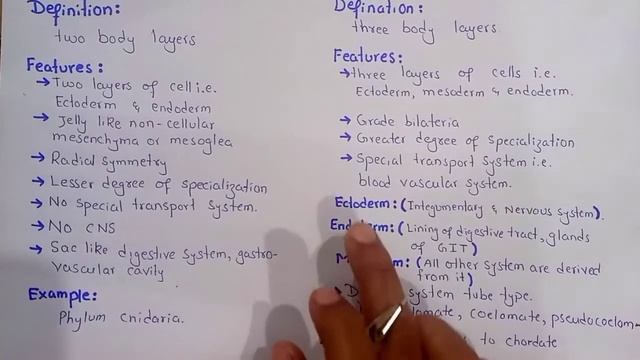 Definition:
two body layers
Features:
→ Two layers of cell i.e.
Ectoderm & endoderm
→ Jelly like non-cellular
mesenchyma or mesoglea
→ Radial symmetry
→ Lesser degree of specialization
→ No special transport system.
→ No CNS
→ Sac like digestive system, gastro-
vascular cavity
Example:
Phylum cnidaria.
Defination:
three body layers
Features:
→ three layers of cells i.e.
Ectoderm, mesoderm & endoderm.
→ Grade bilateria
→ Greater degree of specialization
→ Special transport system i.e.
blood vascular system.
Ectoderm: (Integumentary & Nervous system).
(Lining of digestive tract, glands
of GIT)
(All other system are derived
from it)
system tube type.
coelomate, pseudocoelom-
to chordate